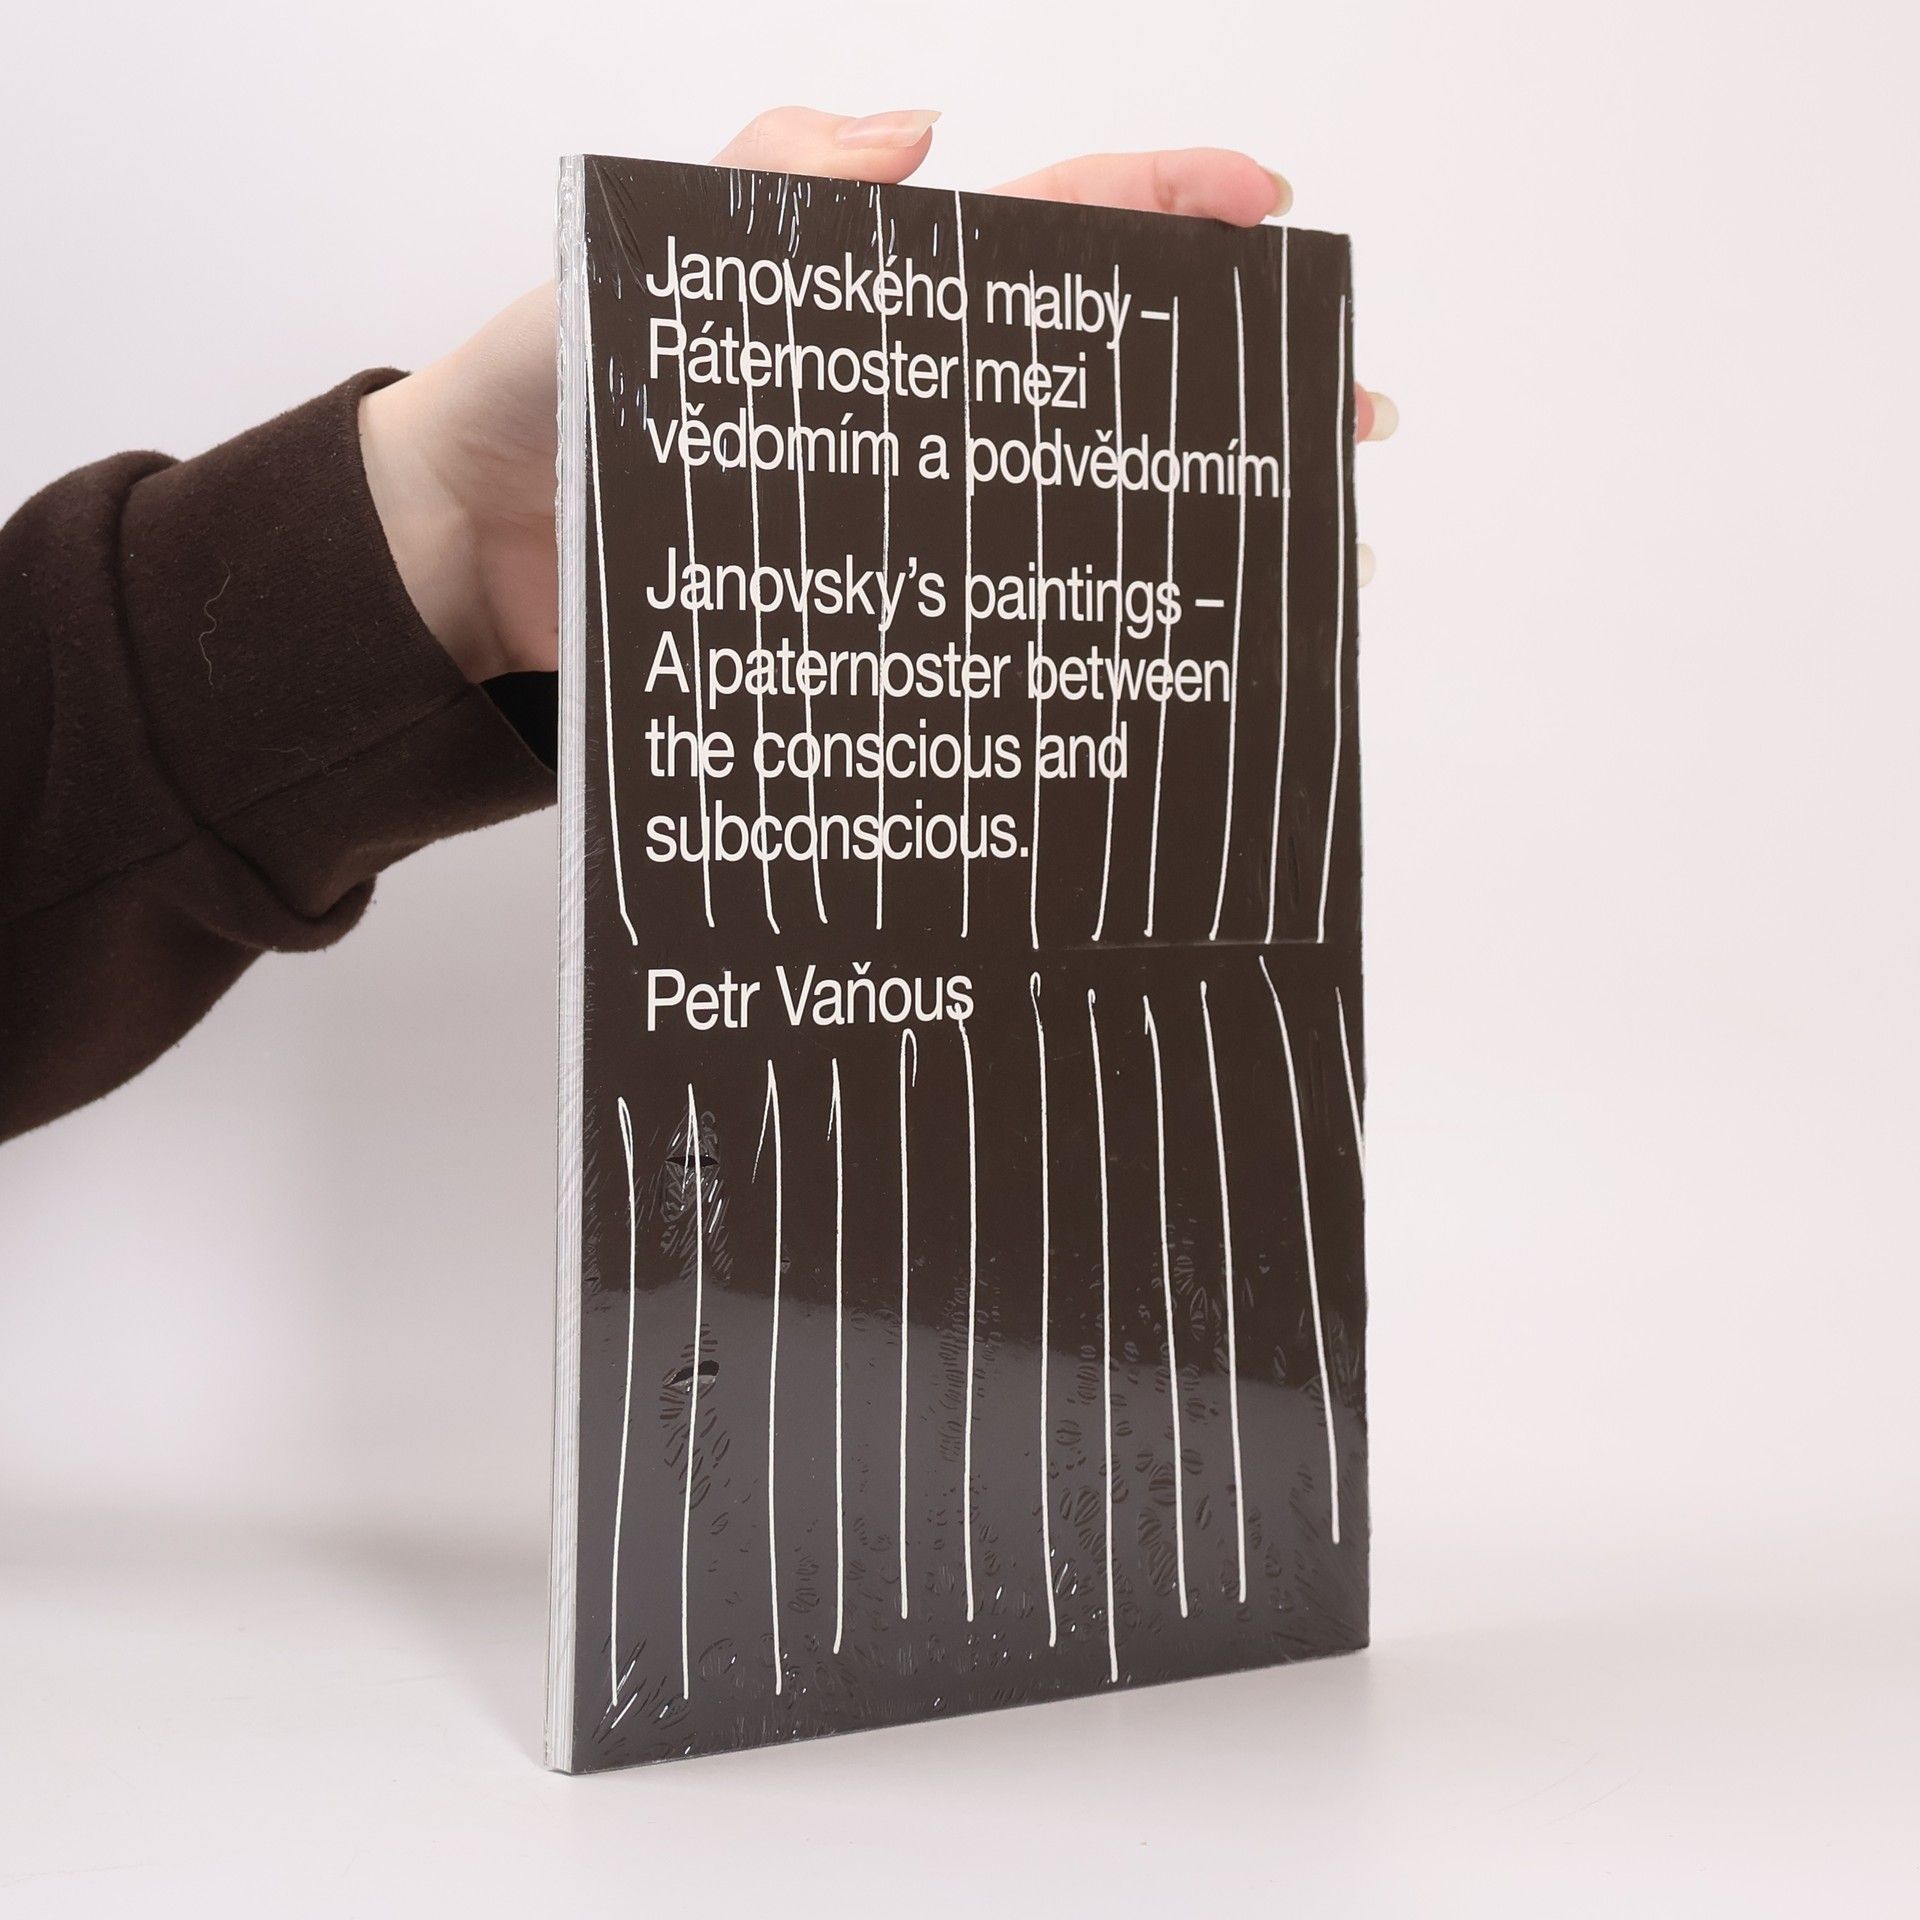 Janovského malby –
Páternoster mezi
vědomím a podvědomím.
Janovsky’s paintings –
A paternoster between
the conscious and
subconscious.
Petr Vaňous